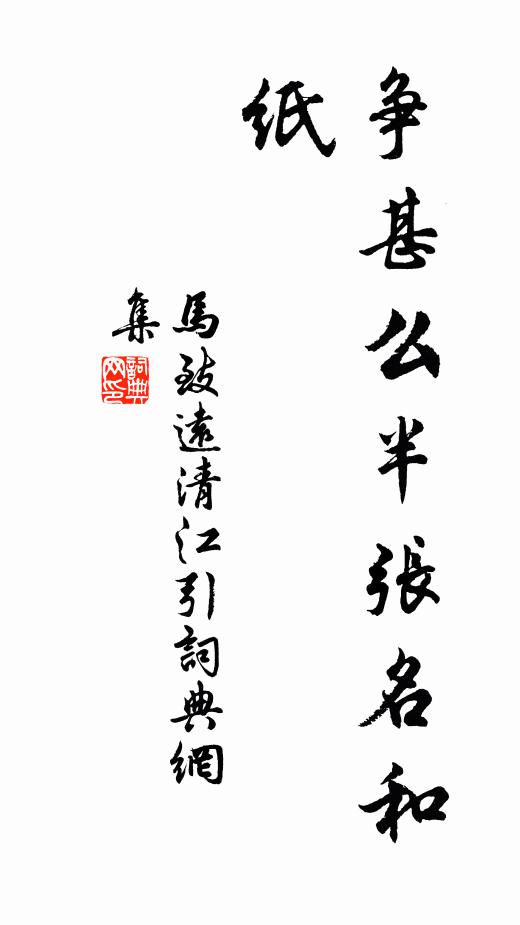 争甚么半張名和
紙
馬致遠清江引詞典網
集
詞典
网印